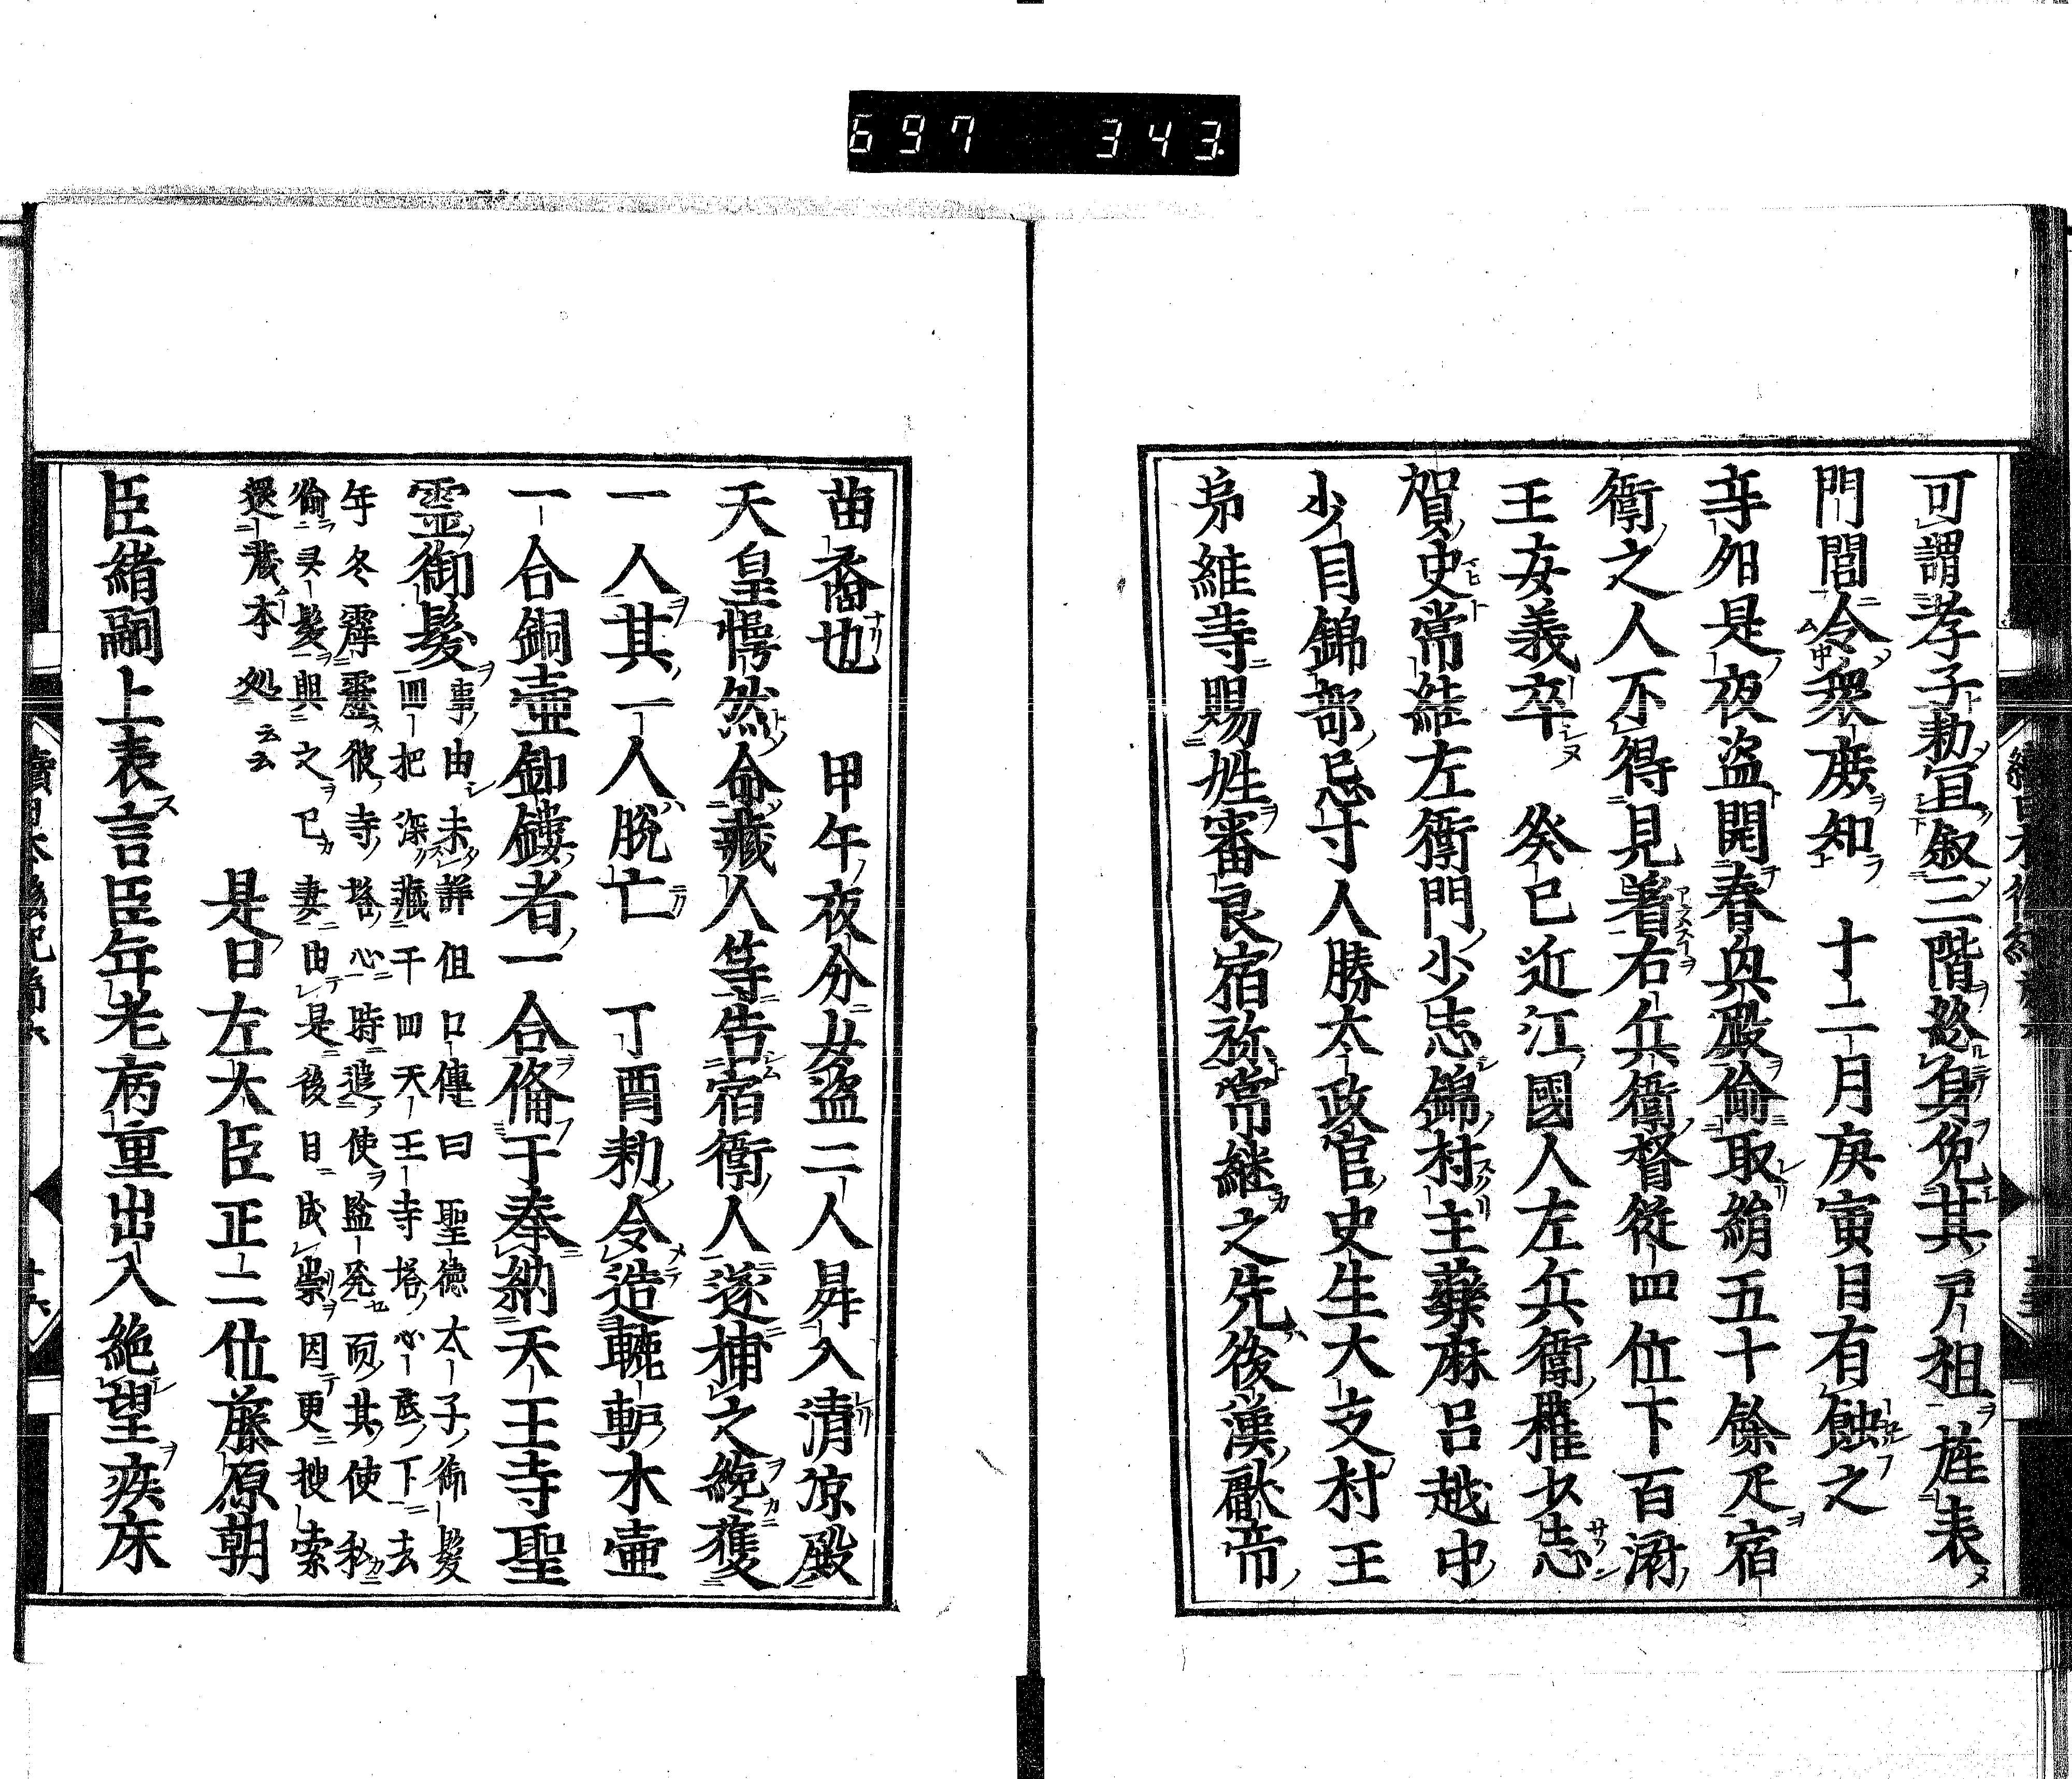 697 343
可謂孝子勅宜叙三階終身免其戸租旌表
門閭令衆庶知 十二月庚寅日有蝕之
辛夘是夜盗開春興殿偷取絹五十餘疋宿
衛之人不得見著右兵衛督從四位下百済
王女義卒 癸巳近江國人左兵衛權少志
賀史常継左衛門少志錦村主藥麻呂越中
少目錦部忌寸人勝太政官史生大友村主
弟維等賜姓審良宿祢常継之先後漢献帝
苗裔也 甲午夜分女盗二人昇入清凉殿
天皇愕然命藏人等告宿衛人遂捕之纔獲
一人其一人脫亡 丁酉勅令造轆轤木壷
一合銅壷卸鏤者一合俻于奉納天王寺聖
霊御髪事由未詳但口傳曰聖徳太子御髪
四把深藏于四天王寺塔心底下去
年冬霹靂彼寺塔心時遣使監発而其使私
偷其髪與之已妻由是後日成祟因更捜索
還藏本処云云
是日左大臣正二位藤原朝
臣緒嗣上表言臣年老病重出入絶望疾床